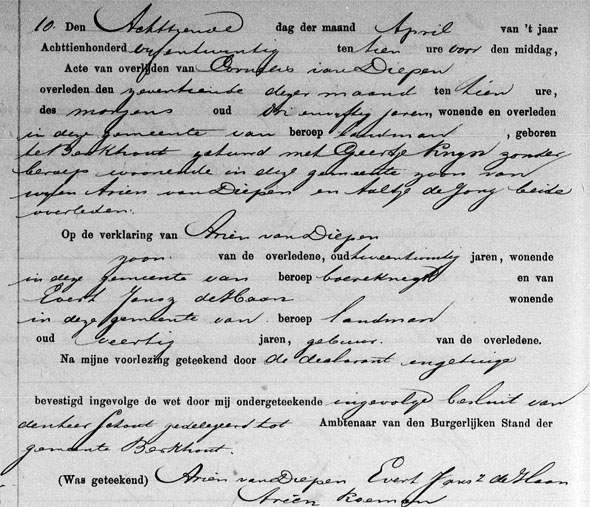 10. Den Achttiende dag der maand April van 't jaar
Achttienhonderd vyfentwintig ten tien ure voor den middag,
Acte van overlijden van Cornelis van Diepen
overleden den zeventiende dezer maand ten tien ure,
des morgens oud drienvyftig jaren, wonende en overleden
in deze gemeente van beroep landman , geboren
te Berkhout gehuwd met Geertje zonder
beroep woonende in deze gemeente zoon van
wylen Arien van Diepen en Aaltje de Jong beide
overleden.
Op de verklaring van Ariën van Diepen
zoon van de overledene, oud tweentwintig jaren, wonende
in deze gemeente van beroep boereknegt en van
Evert Jansz de Haan wonende
in deze gemeente van beroep landman
oud veertig jaren, gebuur van de overledene.
Na mijne voorlezing geteekend door de declarant en getuige
bevestigd ingevolge de wet door mij ondergeteekende ingevolge besluit van
den heer Schout gedelegeerd tot Ambtenaar van den Burgerlijken Stand der
gemeente Berkhout.
(Was geteekend) Ariën van Diepen Evert Jansz de Haan
Ariën Koeman